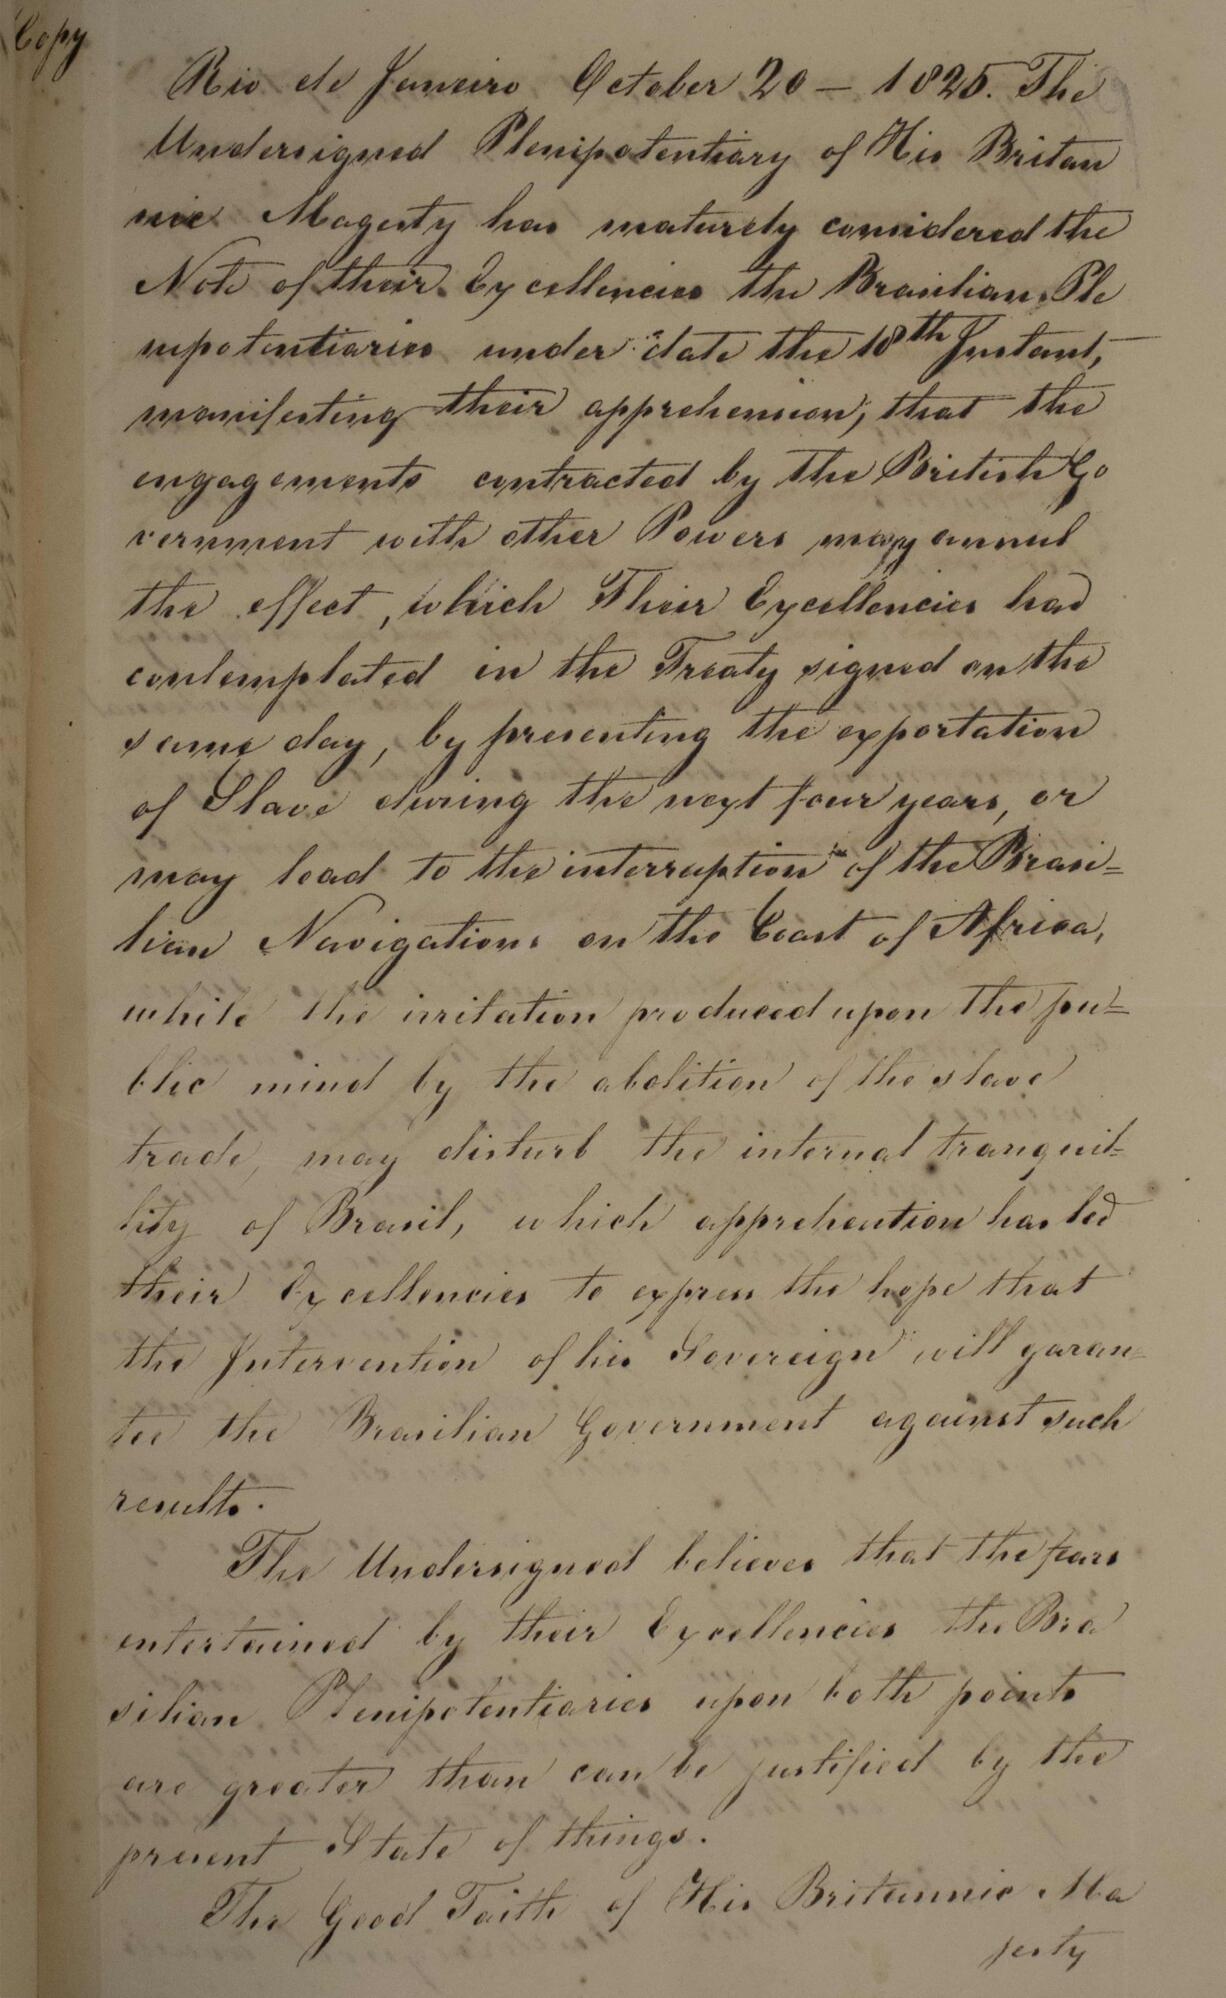 Copy
Rio de Janeiro October 20 — 1825. The
Undersigned Plenipotentiary of His Britan
nic Magesty has maturely considered the
Note of their Excellencies the Brasilian Ple
nipotentiaries under date the 18th Instant,
manifesting their apprehension, that the
engagements contracted by the British Go
vernment with other Powers may annul
the effect, which Their Excellencies had
contemplated in the Treaty signed on the
same day, by presenting the exportation
of Slave during the next four years, or
may lead to the interruption of the Brasi=
lian Navigations on the Coast of Africa,
while the irritation produced upon the pu=
blic mind by the abolition of the slave
trade, may disturb the internal tranquil=
lity of Brasil, which apprehention has led
their Excellencies to express the hope that
the Intervention of his Sovereign will garan=
tee the Brasilian Government against such
results.
The Undersigned believes that the fears
entertained by their Excellencies the Bra
silian Plenipotentiaries upon both points
are greater than can be justified by the
present State of things.
The Good Faith of His Britannic Ma
jesty